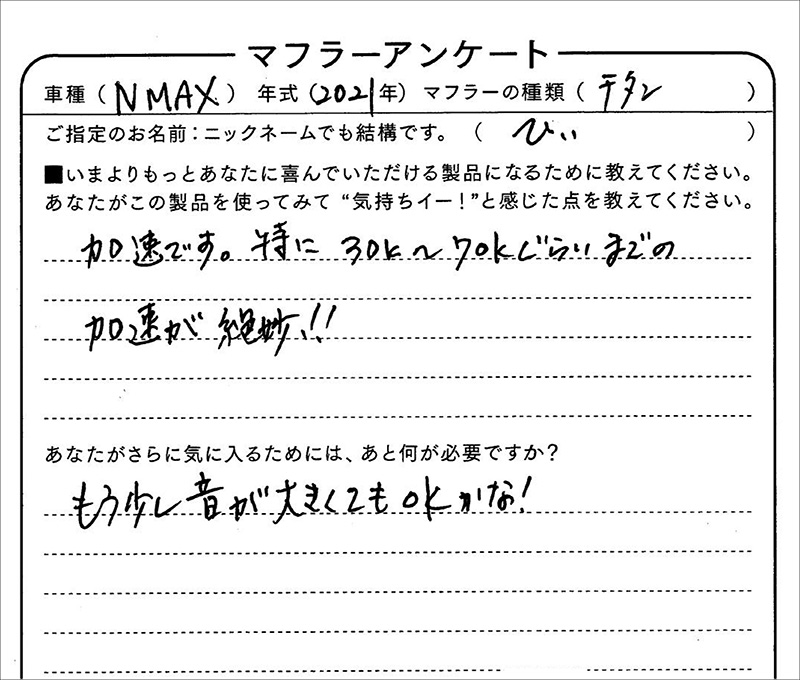 マフラーアンケート
車種（NMAX）年式（2021年）マフラーの種類（チタン）
ご指定のお名前：ニックネームでも結構です。（ひぃ）
■いまよりもっとあなたに喜んでいただける製品になるために教えてください。
あなたがこの製品を使ってみて“気持ちイー！”と感じた点を教えてください。
加速です。特に30k～70kぐらいまでの
加速が絶妙!!
あなたがさらに気に入るためには、あと何が必要ですか？
もう少し音が大きくてもokかな!